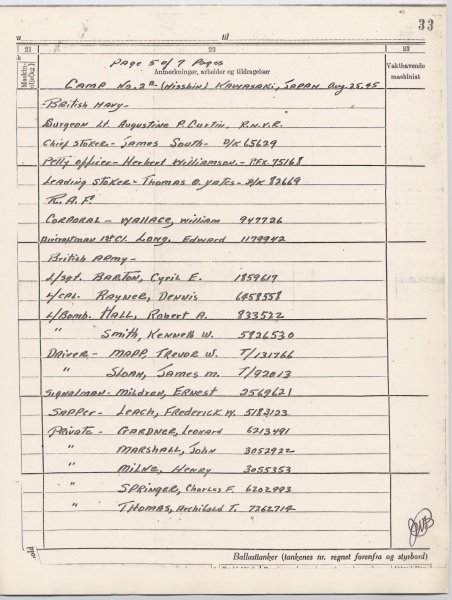 33
til
21 22 23
Page 5 of 7 Pages
Maskinolje(kg.) Anmerkninger, arbeider og tildragelser Vakthavende maskinist
Camp No. 2ᴮ - (Nisshin) Kawasaki, Japan Aug. 25. 45
British Navy-
Surgeon Lt. Augustine P. Curtin, R.N.V.R.
Chief Stoker- James South- D/K 65629
Petty Officer- Herbert Williamson.- P.FX. 75168
Leading Stoker- Thomas O. Yates- D/K 82669
R.A.F.
Corporal - Wallace, William 947726
Aircraftman 1st Cl. Long, Edward 1179942
British Army-
L/Sgt. Barton, Cyril E. 1859617
L/Cpl. Rayner, Dennis 6458558
L/Bomb. Hall, Robert A. 833522
" Smith, Kenneth W. 5826530
Driver- Mapp, Trevor W. T/131766
" Sloan, James M. T/92013
Signalman- Mildren, Ernest 2569621
Sapper- Leach, Frederick W. 5183123
Private- Gardner, Leonard 6213491
" Marshall, John 3052922
" Milne, Henry 3055353
" Springer, Charles F. 6202993
" Thomas, Archibald T. 7262714
Ballasttanker (tankenes nr. regnet forenfra og styrbord)